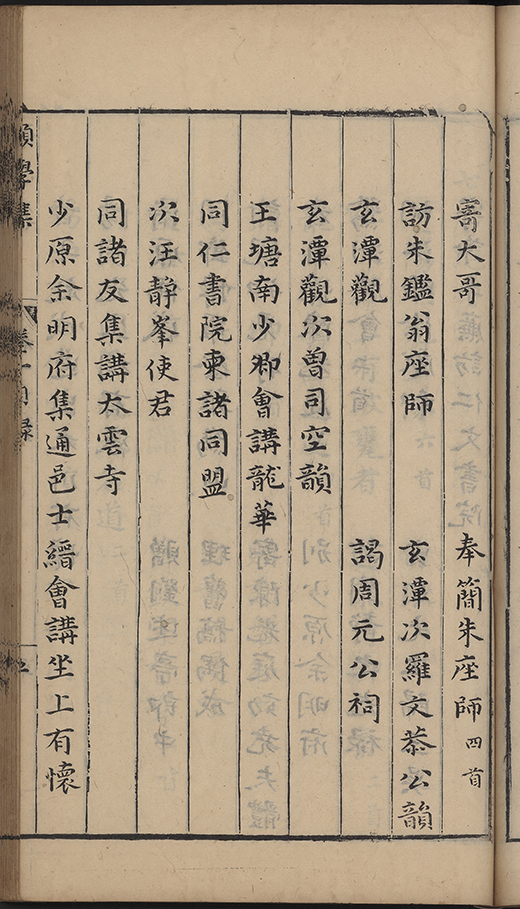 寄大哥 奉簡朱座師四首
訪朱鑑翁座師 玄潭次羅文恭公韻
玄潭觀 謁周元公祠
玄潭觀次曾司空韻
王塘南少卿會講龍華
同仁書院柬諸同盟
次汪靜峯使君
同諸友集講太雲寺
少原余明府集通邑士縉會講坐上有懷
學集
目錄